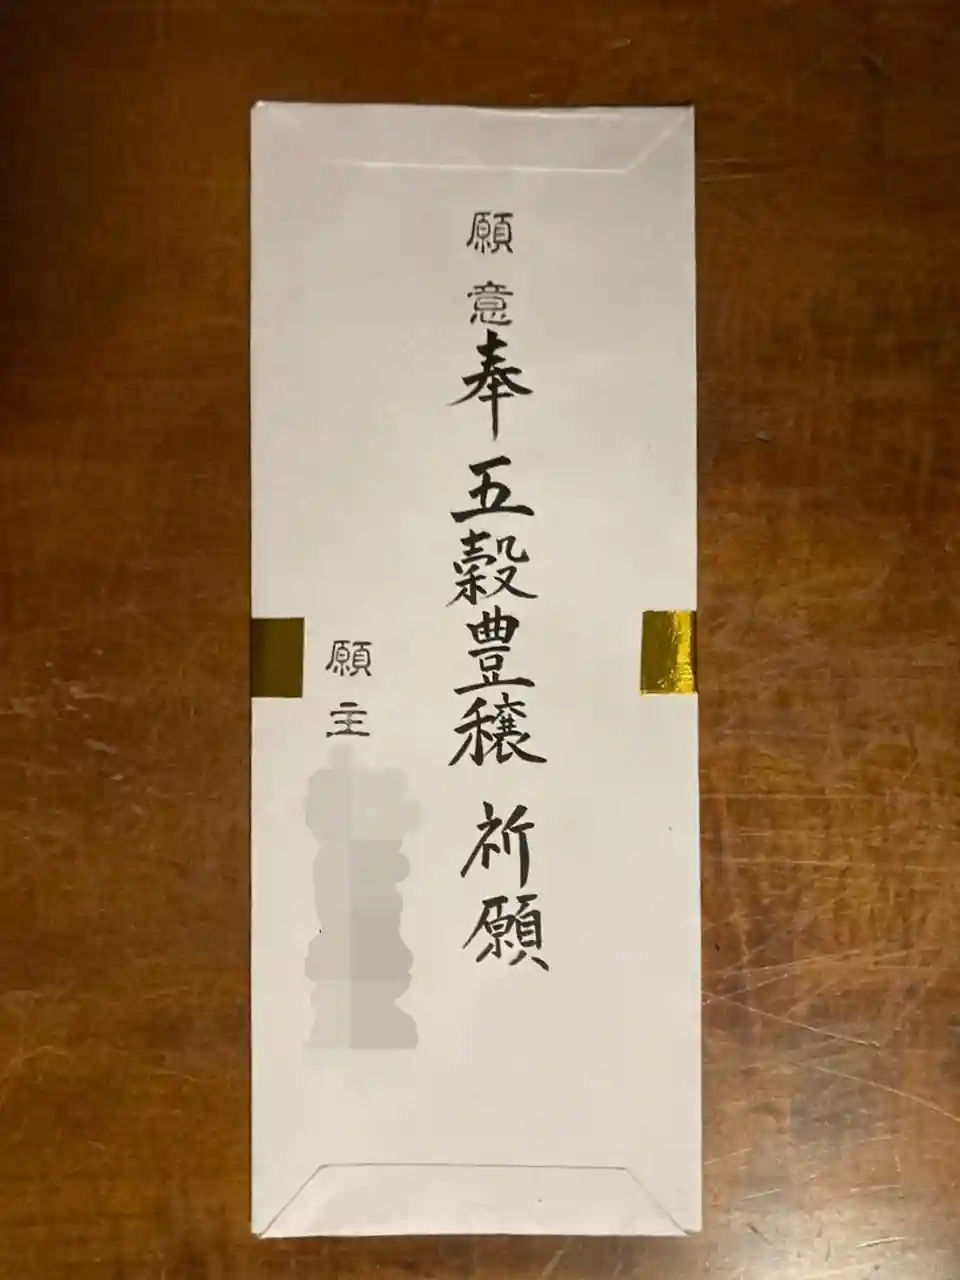 願意奉 五穀豊穣 祈願
願主